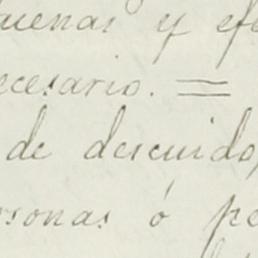 buenas y efe
ecesario. =
de descuido,
rsonas ó pe